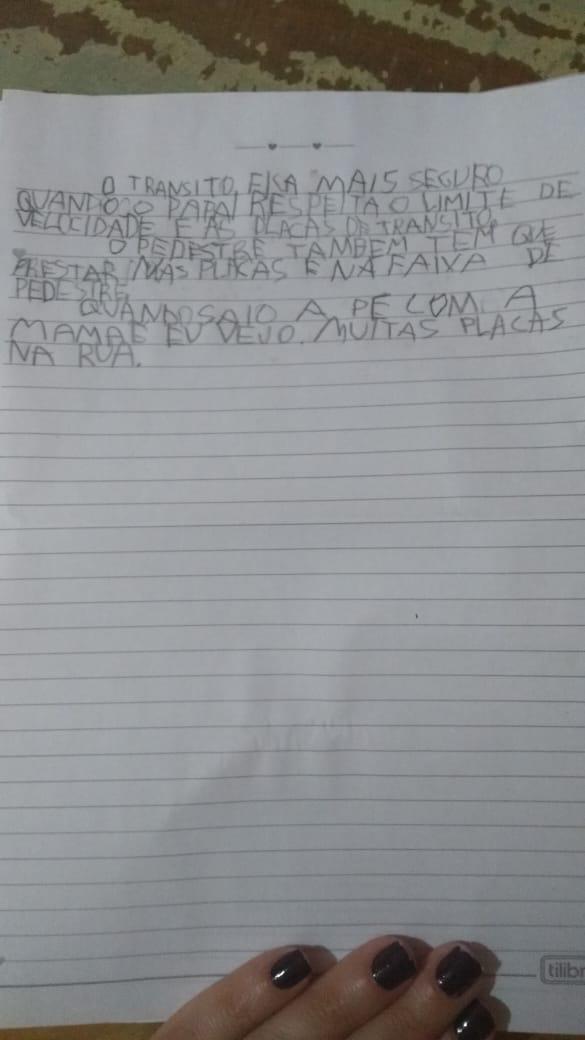 O TRANSITO, FICA MAIS SEGURO
QUANDO O PAPAI RESPEITA O LIMITE DE
VELOCIDADE E AS PLACAS DE TRANSITO.
O PEDESTRE TAMBEM TEM QUE
PRESTAR, NAS PLACAS E NA FAIXA DE
PEDESTRE.
QUANDO SAIO A PE COM A
MAMAE EU VEJO. MUITAS PLACAS
NA RUA.
tilibr